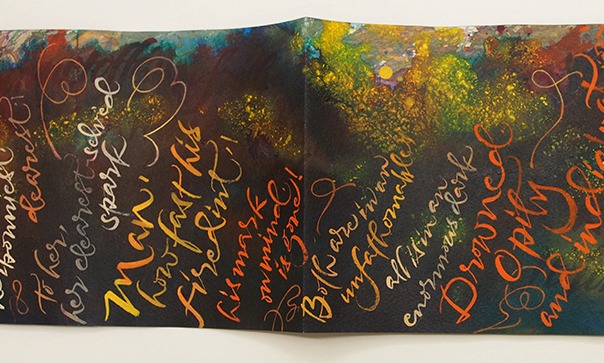 bonniest
dearest
to her,
her clearest selved
spark
Man,
how fast his
firedint,
his mark
on mind
is gone!
Both are in an
unfathomable
all is in an
enormous dark
Drowned
O pity
and